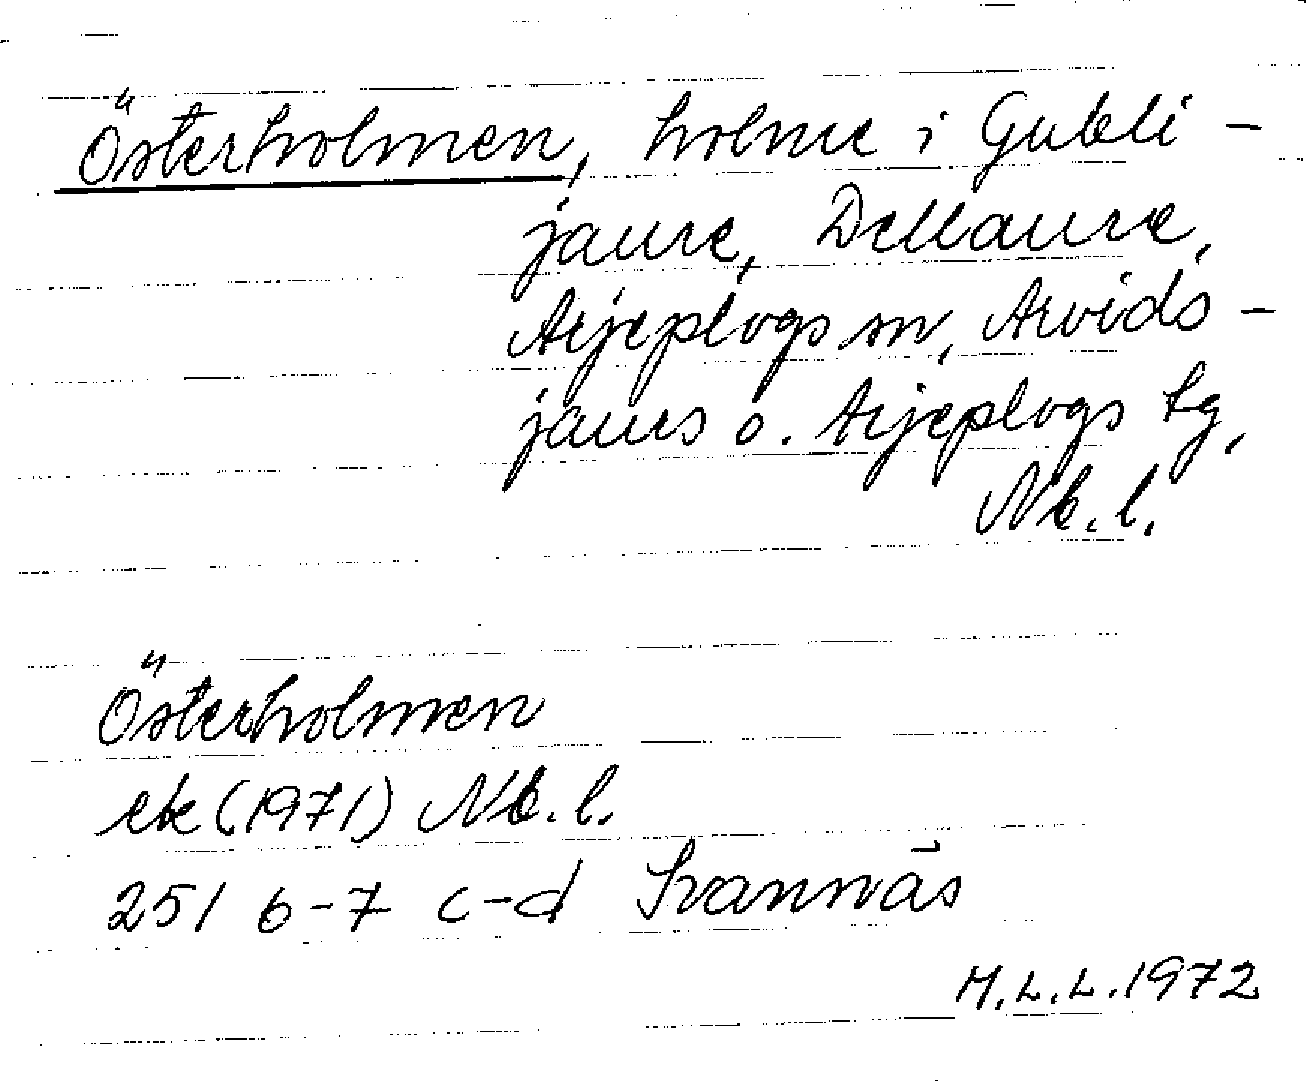 Österholmen, holme i Gubli-
jaure, Dellaure,
Arjeplogs sn, Arvids-
jaurs o. Arjeplogs tg,
Nb. l.
Österholmen
ek (1971) Nb. l.
25I 6-7 c-d Svannäs
M.L.L. 1972